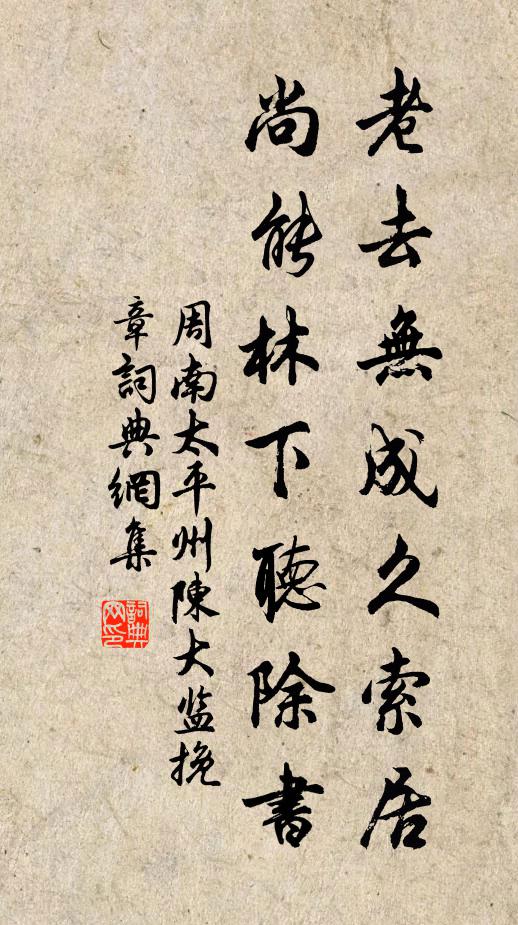 老去無成久索居
尚能林下聴除書
周南太平州陳大监挽
章詞典網集
詞典
网印